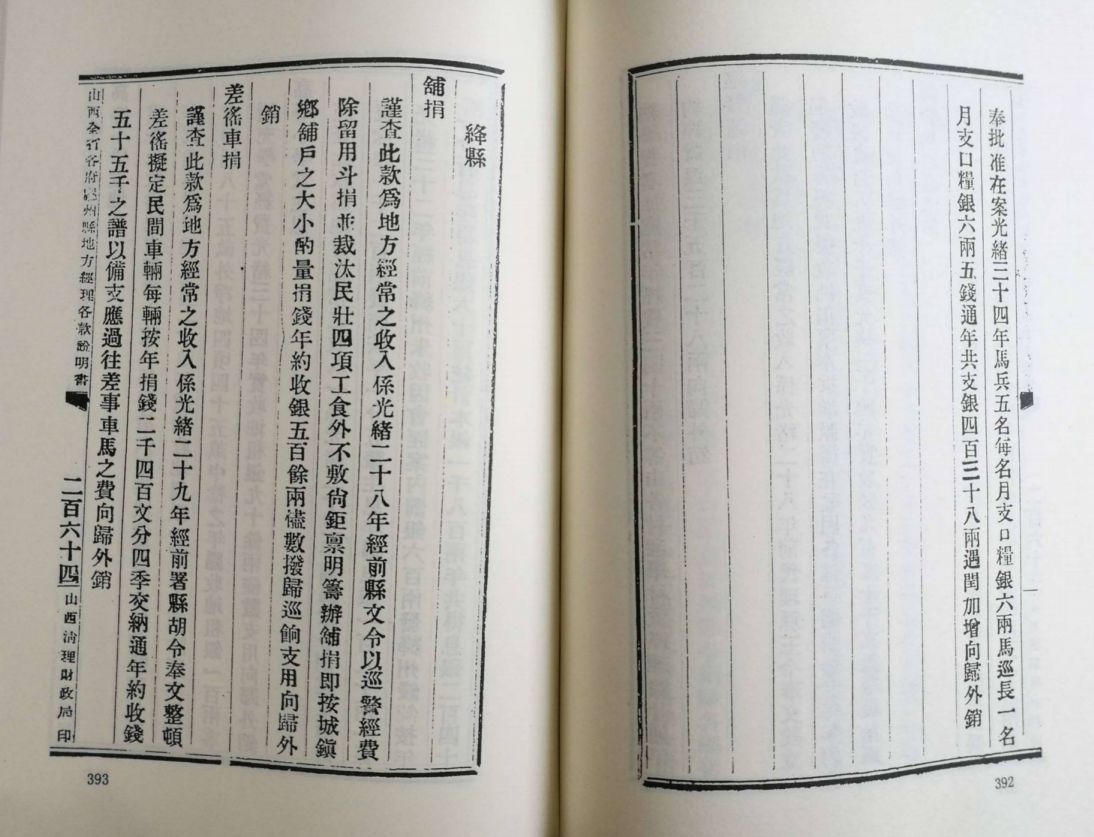 奉批准在案光緒三十四年馬兵五名每名月支口糧銀六兩馬巡長一名
月支口糧銀六兩五錢通年共支銀四百三十八兩遇閏加增向歸外銷
392
絳縣
舖捐
謹查此款爲地方經常之收入係光緒二十八年經前縣文令以巡警經費
除留用斗捐並裁汰民壯四項工食外不敷尙鉅稟明籌辦舖捐即按城鎭
鄉舖戶之大小酌量捐錢年約收銀五百餘兩儘數撥歸巡餉支用向歸外
銷
差徭車捐
謹查此款爲地方經常之收入係光緒二十九年經前署縣胡令奉文整頓
差徭擬定民間車輛每輛按年捐錢二千四百文分四季交納通年約收錢
五十五千之譜以備支應過往差事車馬之費向歸外銷
山西全省各府廳州縣地方經理各款說明書
二百六十四
山西清理財政局印
393